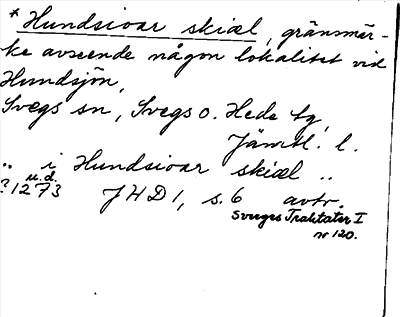 * Hundsioar skiæl, gränsmär-
ke avseende någon lokalitet vid
Hundsjön,
Svegs sn, Svegs o. Hede tg,
Jämtl. l.
.. i Hundsioar skiæl ..
u.d.
?1273 JHD1, s. 6 avtr.
Sveriges Traktater I
nr 120.